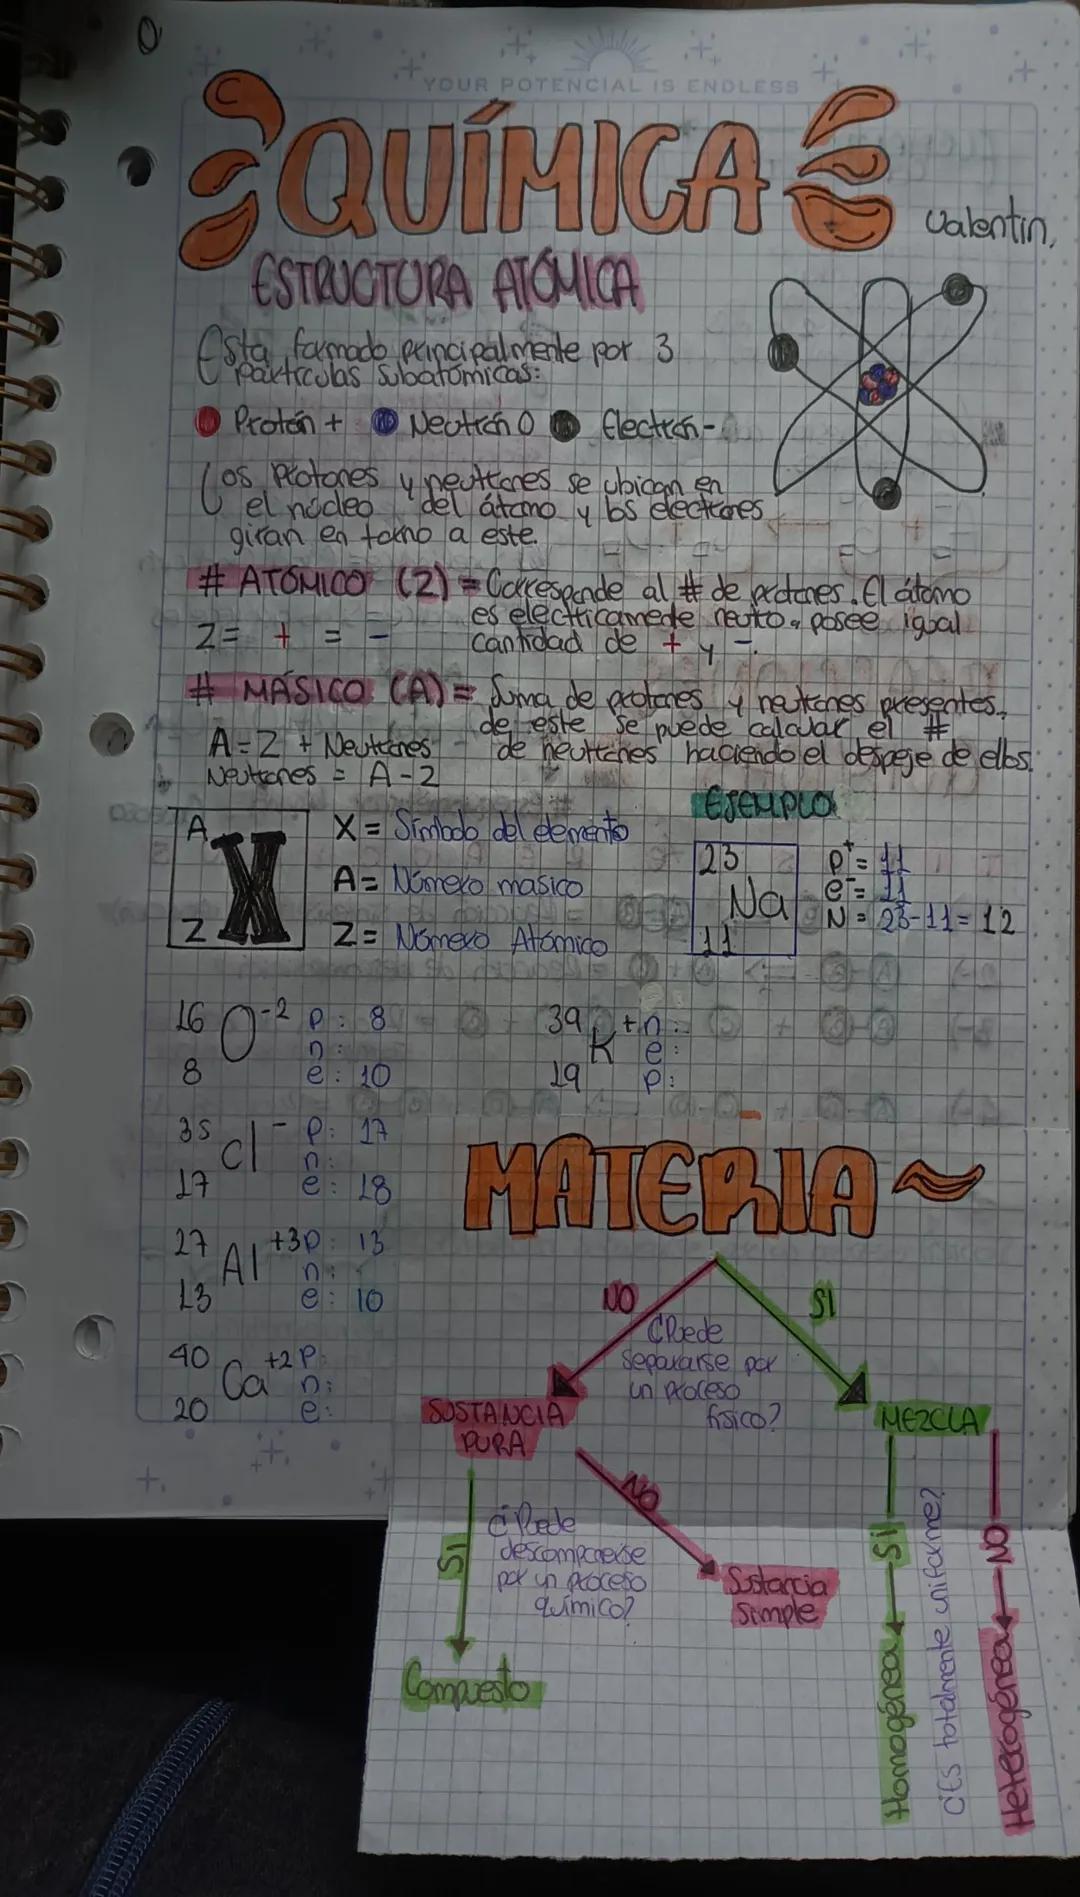 YOUR POTENCIAL IS ENDLESS
QUÍMICA
Valentin,
ESTRUCTURA ATÓMICA
Esta formado principalmente por 3
partículas subatómicas:
Protón + Neutrón 0 Electrón -
Los protones y neutrones se ubican en
el núcleo del átomo y los electrones
giran en torno a este.
# ATÓMICO (Z) = Corresponde al # de protones. El átomo
es electricamente neutro, posee igual
Z = + = - cantidad de + y -.
# MÁSICO (A) = Suma de protones y neutrones presentes,
de este se puede calcular el #
A = Z + Neutrones de neutrones haciendo el despeje de ellos.
Neutrones = A - Z
EJEMPLO
A
X
Z
X = Símbolo del elemento
A = Número masico
Z = Número Atómico
23
Na
11
p+ = 11
e- = 11
N = 23-11 = 12
16 O -2 p: 8
n:
8 e: 10
39 K + n:
e:
19 p:
35 Cl - p: 17
n:
17 e: 18
27 Al +3 p: 13
n:
13 e: 10
40 Ca +2 p:
n:
20 e:
MATERIA
NO
SI
¿Puede
separarse por
un proceso
fisico?
SUSTANCIA
PURA
MEZCLA
NO
SI
¿Puede
descomponerse
por un proceso
químico?
Sustancia
simple
Compuesto
SI
Homogénea
¿Es totalmente uniforme?
NO
Heterogénea